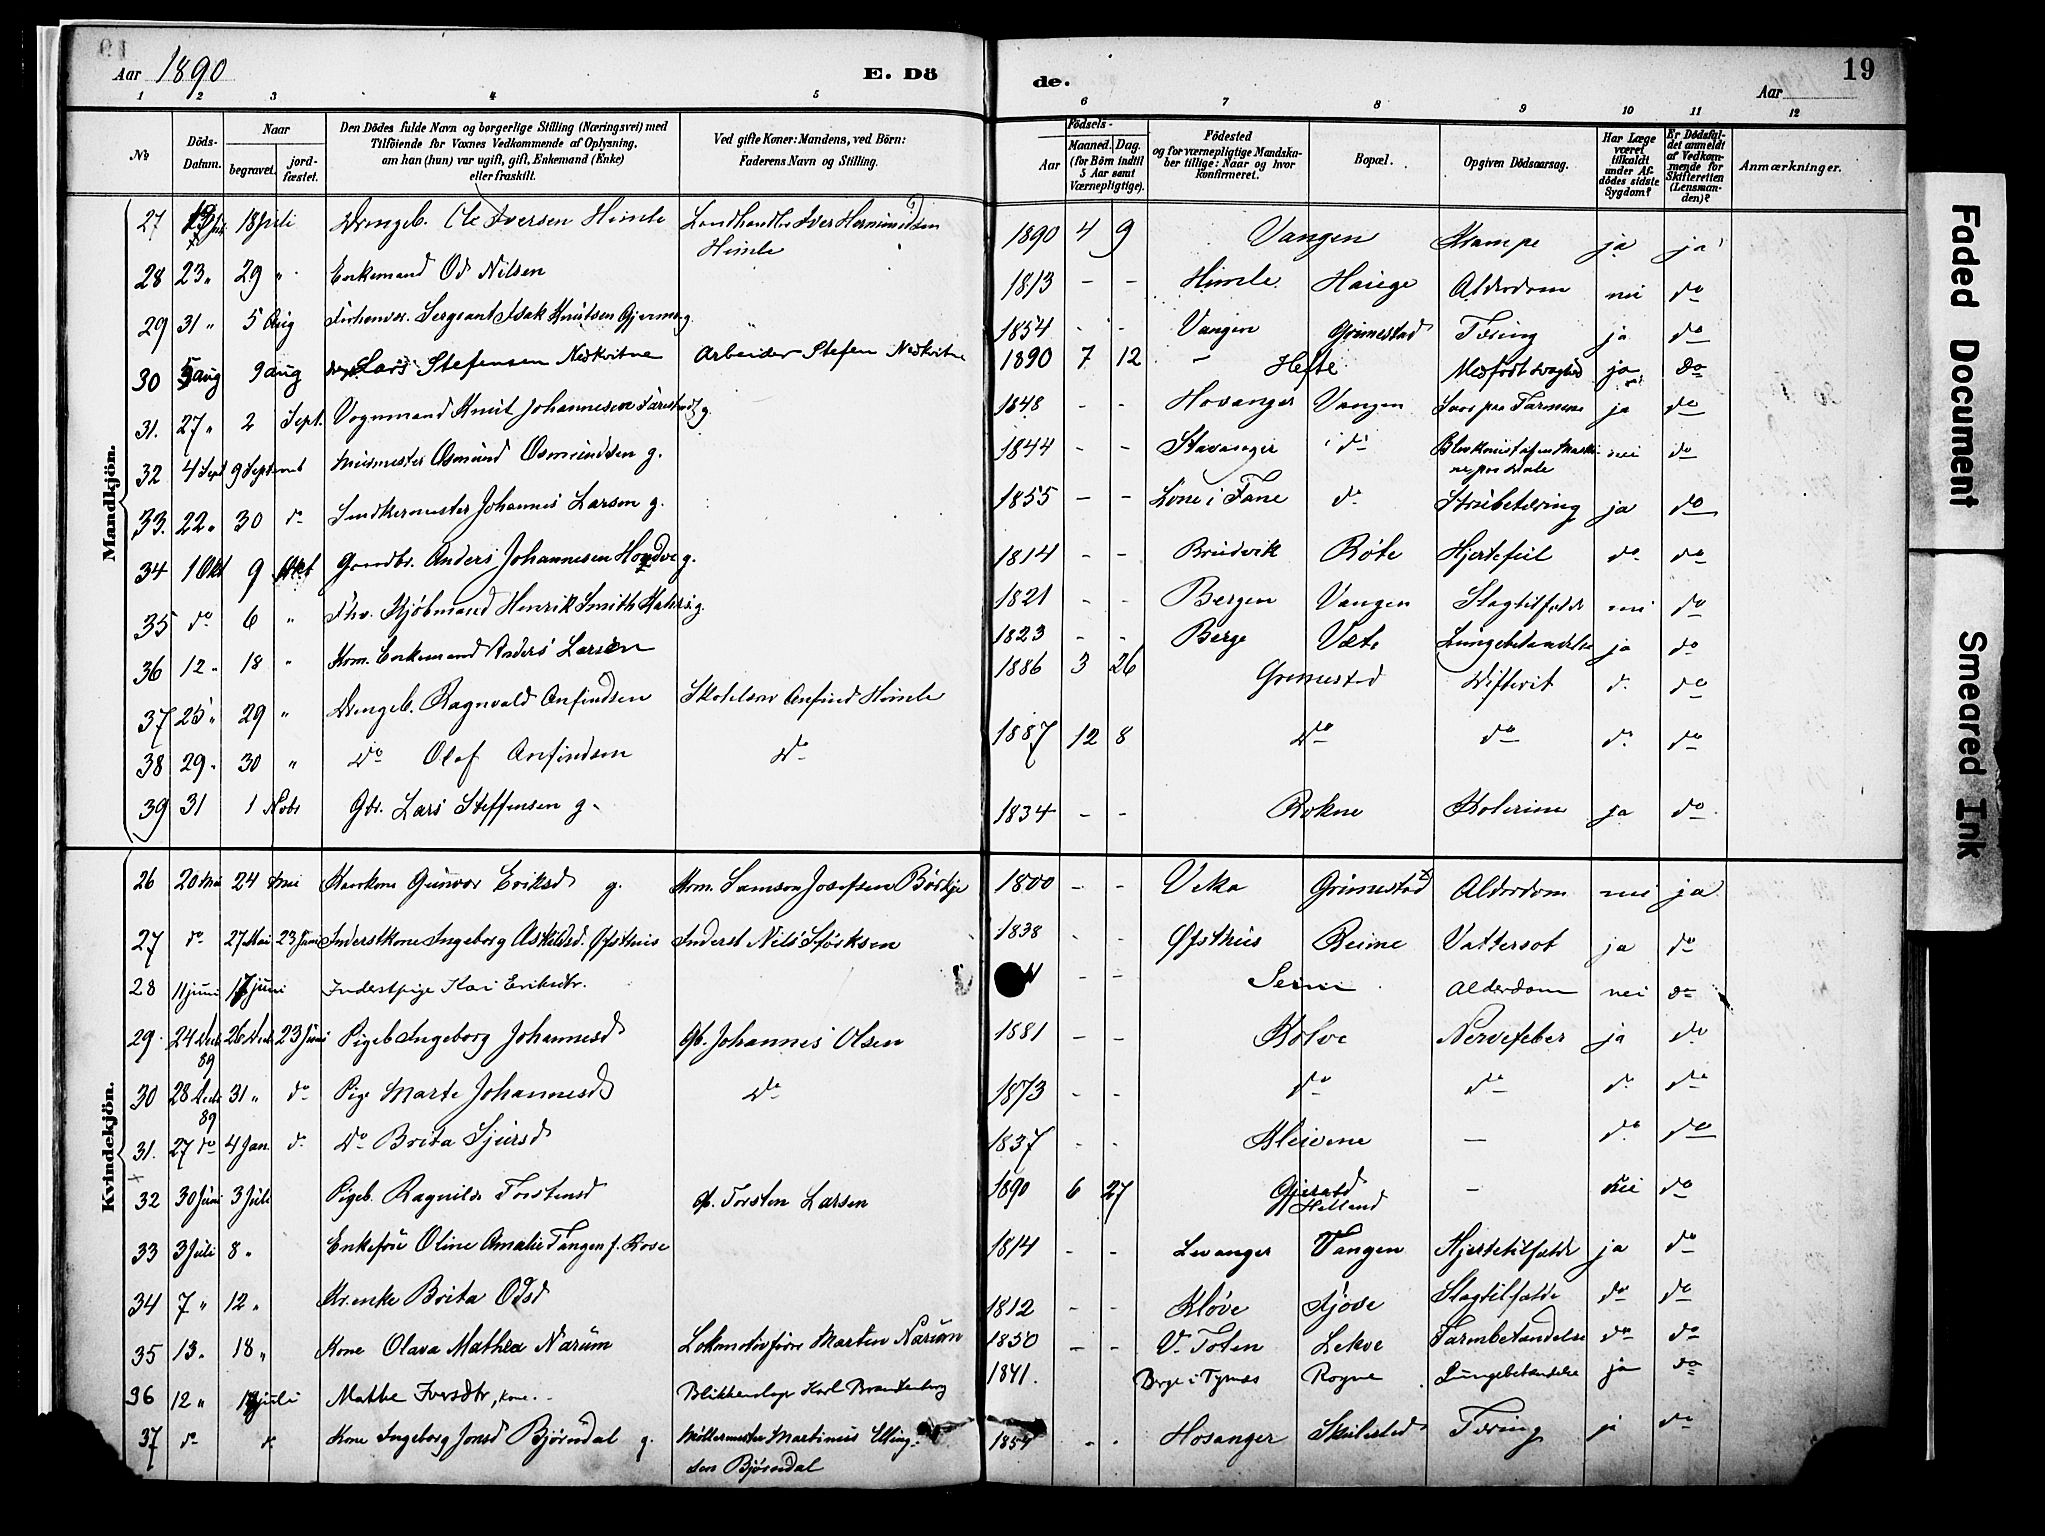 Aar 1890
E. Dö
de.
Aar
19
1 2 3 4 5 6 7 8 9 10 11 12
№
Döds-Datum.
Naar
begravet.
jord-fæstet.
Den Dödes fulde Navn og borgerlige Stilling (Næringsvei) med
Tilföiende for Voxnes Vedkommende af Oplysning,
om han (hun) var ugift, gift, Enkemand (Enke)
eller fraskilt.
Ved gifte Koner: Mandens, ved Börn:
Faderens Navn og Stilling.
Födsels-
Aar
Maaned. Dag.
(for Börn indtil
5 Aar samt
Værnepligtige).
Födested
og for værnepligtige Mandska-
ber tillige: Naar og hvor
konfirmeret.
Bopæl.
Opgiven Dödsaarsag.
Har Læge
været
tilkaldt
under Af-
dödes sidste
Sygdom?
Er Dödsfal-
det anmeldt
af Vedkom-
mende for
Skifteretten
(Lensman-
den)?
Anmærkninger.
Mandkjön.
27 18 Juli Drengeb. Ole Iversen Himle Landhandler Iver Hermundsen 1890 4 9 Vangen Krampe ja ja
Himle
28 23 " 29 " Enkemand Od Nilsen 1813 - - Himle Alderdom nei do
29 31 " 5 Aug Sergeant Isak Knutsen g. 1854 - - Vangen Grimestad Tæring ja do
30 5 aug 9 aug Lars Stefensen Nedkvitne Arbeider Stefen Nedkvitne 1890 7 12 - Hefte Medfødt svaghed ja do
31. 27 " 2 Sept. Vognmand Knut Johannesen g. 1848 - - Vangen ja do
32 4 Sept 9 Sept Osmund Osmundsen g. 1844 - - Stavanger do nei do
33. 22 " 30 do Johannes Larsen g. 1855 - - Lone i Fane do Strubetæring ja do
34 1 Okt 9 Okt Gaardbr. Anders Johannesen g. 1814 - - Brudvik Røte Hjertefeil do do
35 do 6 " Fhv. Kjøbmand Henrik Smith g. 1821 - - Bergen Vangen Slagtilfælde nei do
36 12 " 18 " Kom. Enkemand Anders Larsen 1823 - - Berge Væte Lungebetændelse ja do
37 25 " 29 " Drengeb. Ragnvald Anfindsen Anfind Himle 1886 3 26 Grimestad Difterit do do
38 29 " 30 " Do Olaf Anfindsen Do 1887 12 8 Do do do do
39 31 1 Nobr Gbr. Lars Steffensen g. 1834 - - Rokne Kolerine ja do
Kvindekjön.
26 20 Mai 24 Mai Kaarkone Gunvor Eriksd g. Kom. Samson Josefsen Børkje 1800 - - Veka Grimestad Alderdom nei ja
27 do 27 Mai 23 Juni Inderstkone Ingeborg Askildsd. Øfsthus Inderst Nils 1838 - - Øfsthus Reime Vattersot ja do
28 11 juni 17 juni Kari Eriksdtr. - - Alderdom nei do
29 24 Decbr 89 26 Decbr 23 Juni Pigeb Ingeborg Johannesd Gb. Johannes Olsen 1881 - - Kolve Nervefeber ja do
30 28 Decbr 89 31 " do Pige Marte Johannesd Do 1873 - - do do do do
31. 27 do 4 Jan. do Do Brita Sjursd 1837 - - Kleivene - do do
32 30 Juni 3 Juli Pigeb. Ragnilda Torstensd Torsten Larsen 1890 6 27 Helland - nei do
33 3 Juli 8 " Enkefrue Oline Amalie Tangen f. 1814 - - Levanger Vangen Hjertetilfælde ja do
34 7 " 12 " Kr. enke Brita Odsd 1812 - - Kløve Kjøve Slagtilfælde do do
35 13 " 18 " Kone Olava Mathea Narum Lokomotivfører Martin Narum 1850 - - V. Toten Lekve Tarmbetændelse do do
36 12 " juli Iversdtr, kone. Blikkenslager Karl Brandenborg 1841. Rogne Lungebetændelse ja do
37 do do Kone Ingeborg Jonsd Bjørndal g. Møllermester Martinus Elling- 1854 - - Hosanger Skulestad Tæring ja do
sen Bjørndal
Faded Document
Smeared Ink